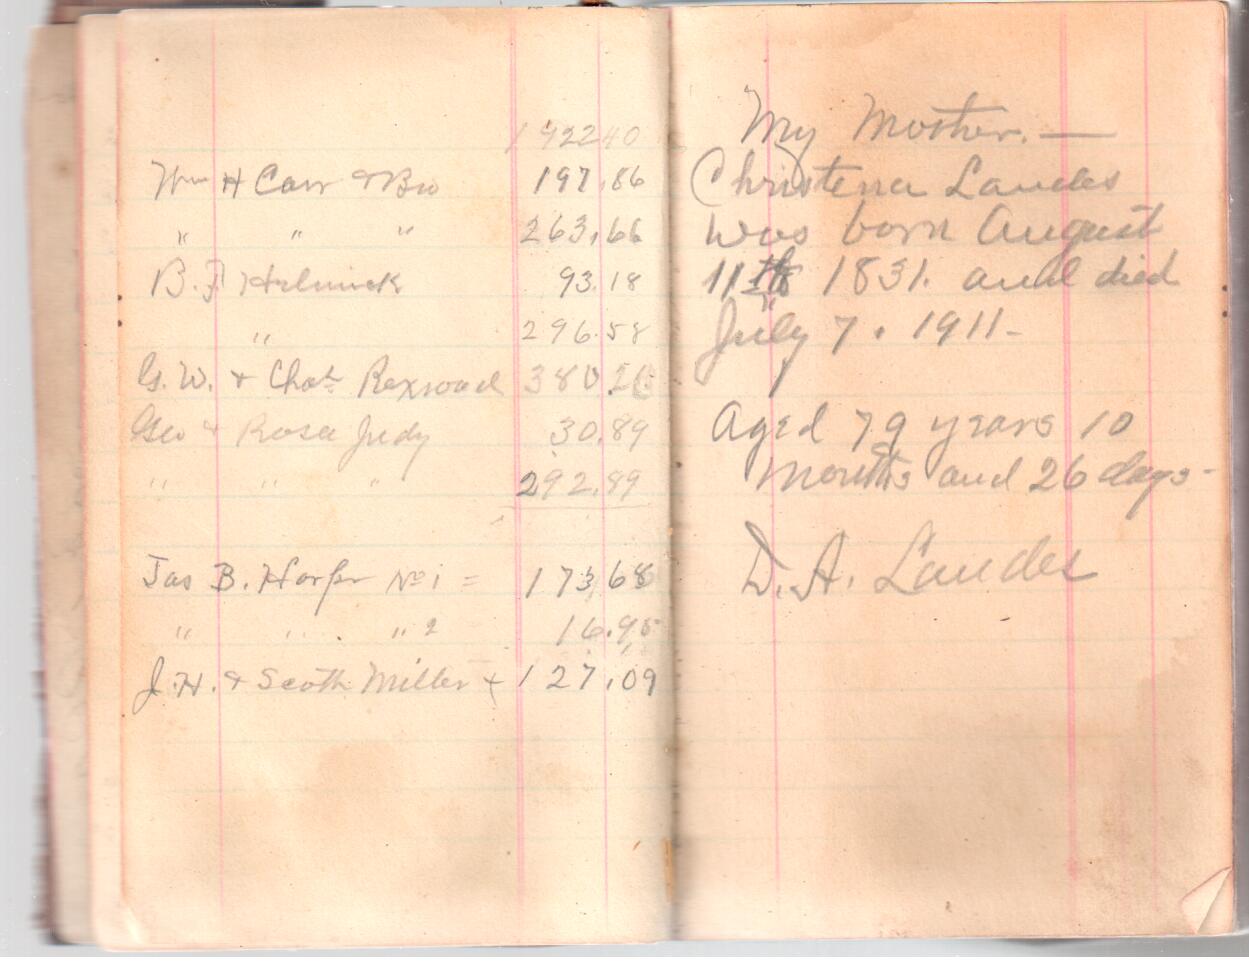 1922 40
Wm H Carr & Bro 197.86
" " " 263.66
B. F Helmick 93.18
" 296.58
G. W. & Chas Rexroad 380.26
Geo & Rosa Judy 30.89
" " " 292.89
Jas B. Harper No 1 = 173.68
" " . " 2 16.95
J. H. & Scott Miller 127.09
My Mother. —
Christena Landes
was born August
11th 1831. and died
July 7. 1911-
Aged 79 years 10
Months and 26 days-
D. A. Landes